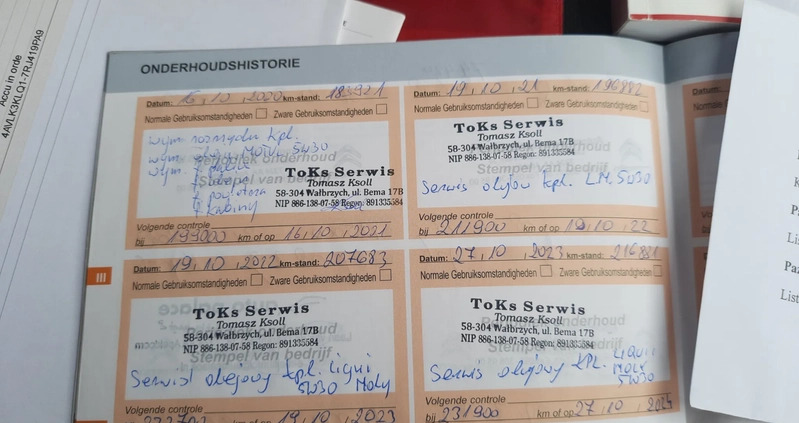 Accu in orde
4AVLK3KLQ1-7RJ419PA9
ONDERHOUDSHISTORIE
Datum: 16, 10, 2020 km-stand: 183921
Normale Gebruiksomstandigheden Zware Gebruiksomstandigheden
wym rozrządu kpl.
wym. MOTUL 5W30
wym.
kabiny
ToKs Serwis
Tomasz Ksoll
58-304 Wałbrzych, ul. Bema 17B
NIP 886-138-07-58 Regon: 891335584
Volgende controle
bij 199000 km of op 16, 10, 2021
Datum: 19, 10, 21 km-stand: 196882
Normale Gebruiksomstandigheden Zware Gebruiksomstandigheden
ToKs Serwis
Tomasz Ksoll
58-304 Wałbrzych, ul. Bema 17B
NIP 886-138-07-58 Regon: 891335584
Stempel van bedrijf
Serwis olejowy kpl. LM. 5W30
Volgende controle
bij 211900 km of op 19, 10, 22
III
Datum: 19, 10, 2022 km-stand: 207683
Normale Gebruiksomstandigheden Zware Gebruiksomstandigheden
ToKs Serwis
Tomasz Ksoll
58-304 Wałbrzych, ul. Bema 17B
NIP 886-138-07-58 Regon: 891335584
Stempel van bedrijf
Serwis olejowy kpl. Liqui
5W30 Moly
Volgende controle
km of op 19, 10, 2023
Datum: 27, 10, 2023 km-stand: 216881
Normale Gebruiksomstandigheden Zware Gebruiksomstandigheden
ToKs Serwis
Tomasz Ksoll
58-304 Wałbrzych, ul. Bema 17B
NIP 886-138-07-58 Regon: 891335584
Stempel van bedrijf
Serwis olejowy kpl. Liqui
Moly
5W30
Volgende controle
bij 231900 km of op 27, 10, 2024
Datum:
Normal
Volgen
bij
Datum:
Norma
Volge
bij